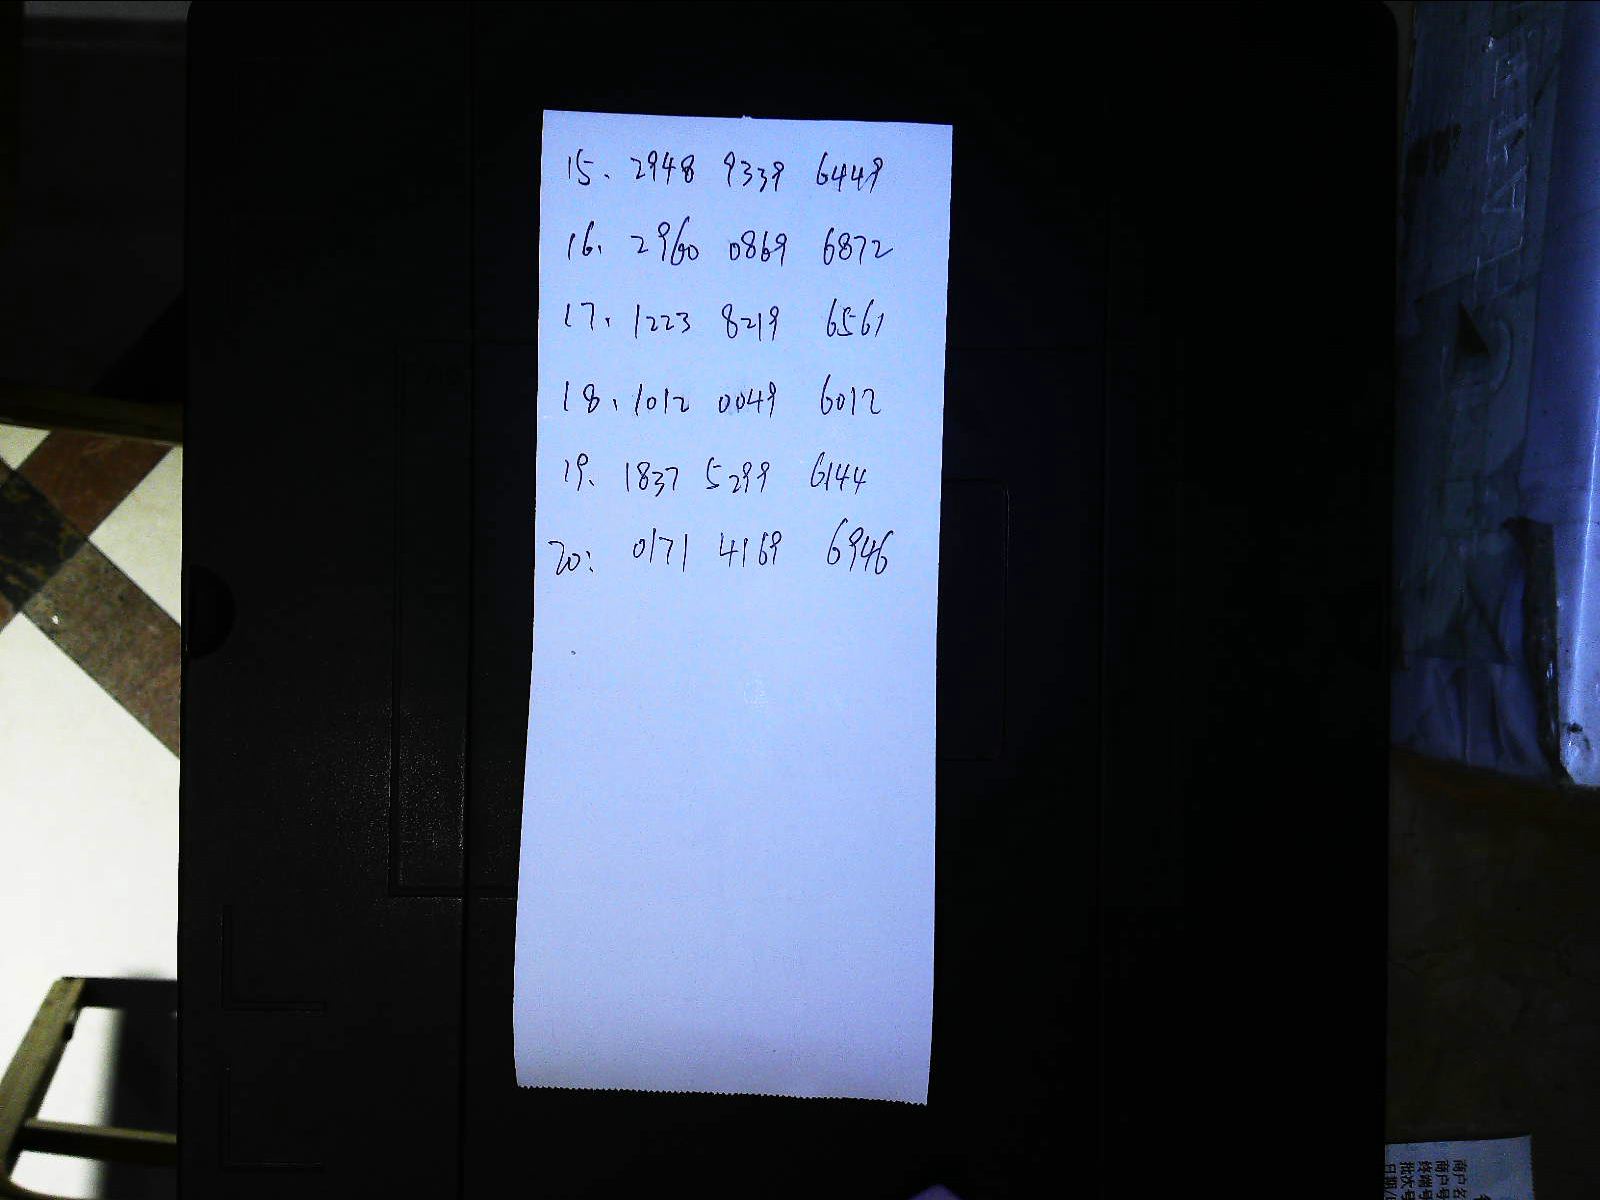 15. 2948 9339 6449
16. 2960 0869 6872
17. 1223 8219 6561
18. 1012 0049 6012
19. 1837 5299 6144
20: 0171 4169 6946
商户名
商户号
终端号
批次号
日期/